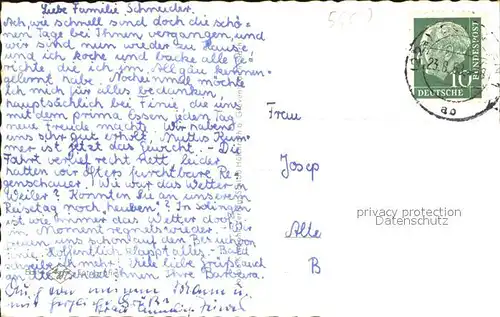 Liebe Familie Schneider.
Ach, wie schnell sind doch die schö-
nen Tage bei Ihnen vergangen, und
wir sind nun wieder zu Hause
und ich koche und backe alle Ge-
richte die ich im Allgäu kennen-
gelernt habe. Nocheinmal möchte
ich mich für alles bedanken,
hauptsächlich bei Finie, die uns
mit dem prima Essen jeden Tag
neue Freude macht. Wir haben
uns sehr gut erholt, Muttis Kum-
mer ist jetzt das Gewicht. - Die
Fahrt verlief recht nett, leider
hatten wir öfters furchtbare Re-
genschauer. Wie war das Wetter in
Weiler? Konnten Sie an unserem
Reisetag noch "heuben"? In Solingen
ist wie immer das Wetter doof
im Moment regnets wieder. Wir
freuen uns schon auf den Besuch von
Finie. Hoffentlich klappt alles. Bald
schreibe ich mehr. Viele liebe Grüße auch
an alle sendet Ihnen Ihre Barbara.
Auch von meinem Mann u.
mir
Grüße
Frau
Josep
Alte
B
DEUTSCHE
BUNDESPOST
10
protected copyright
Datenschutz